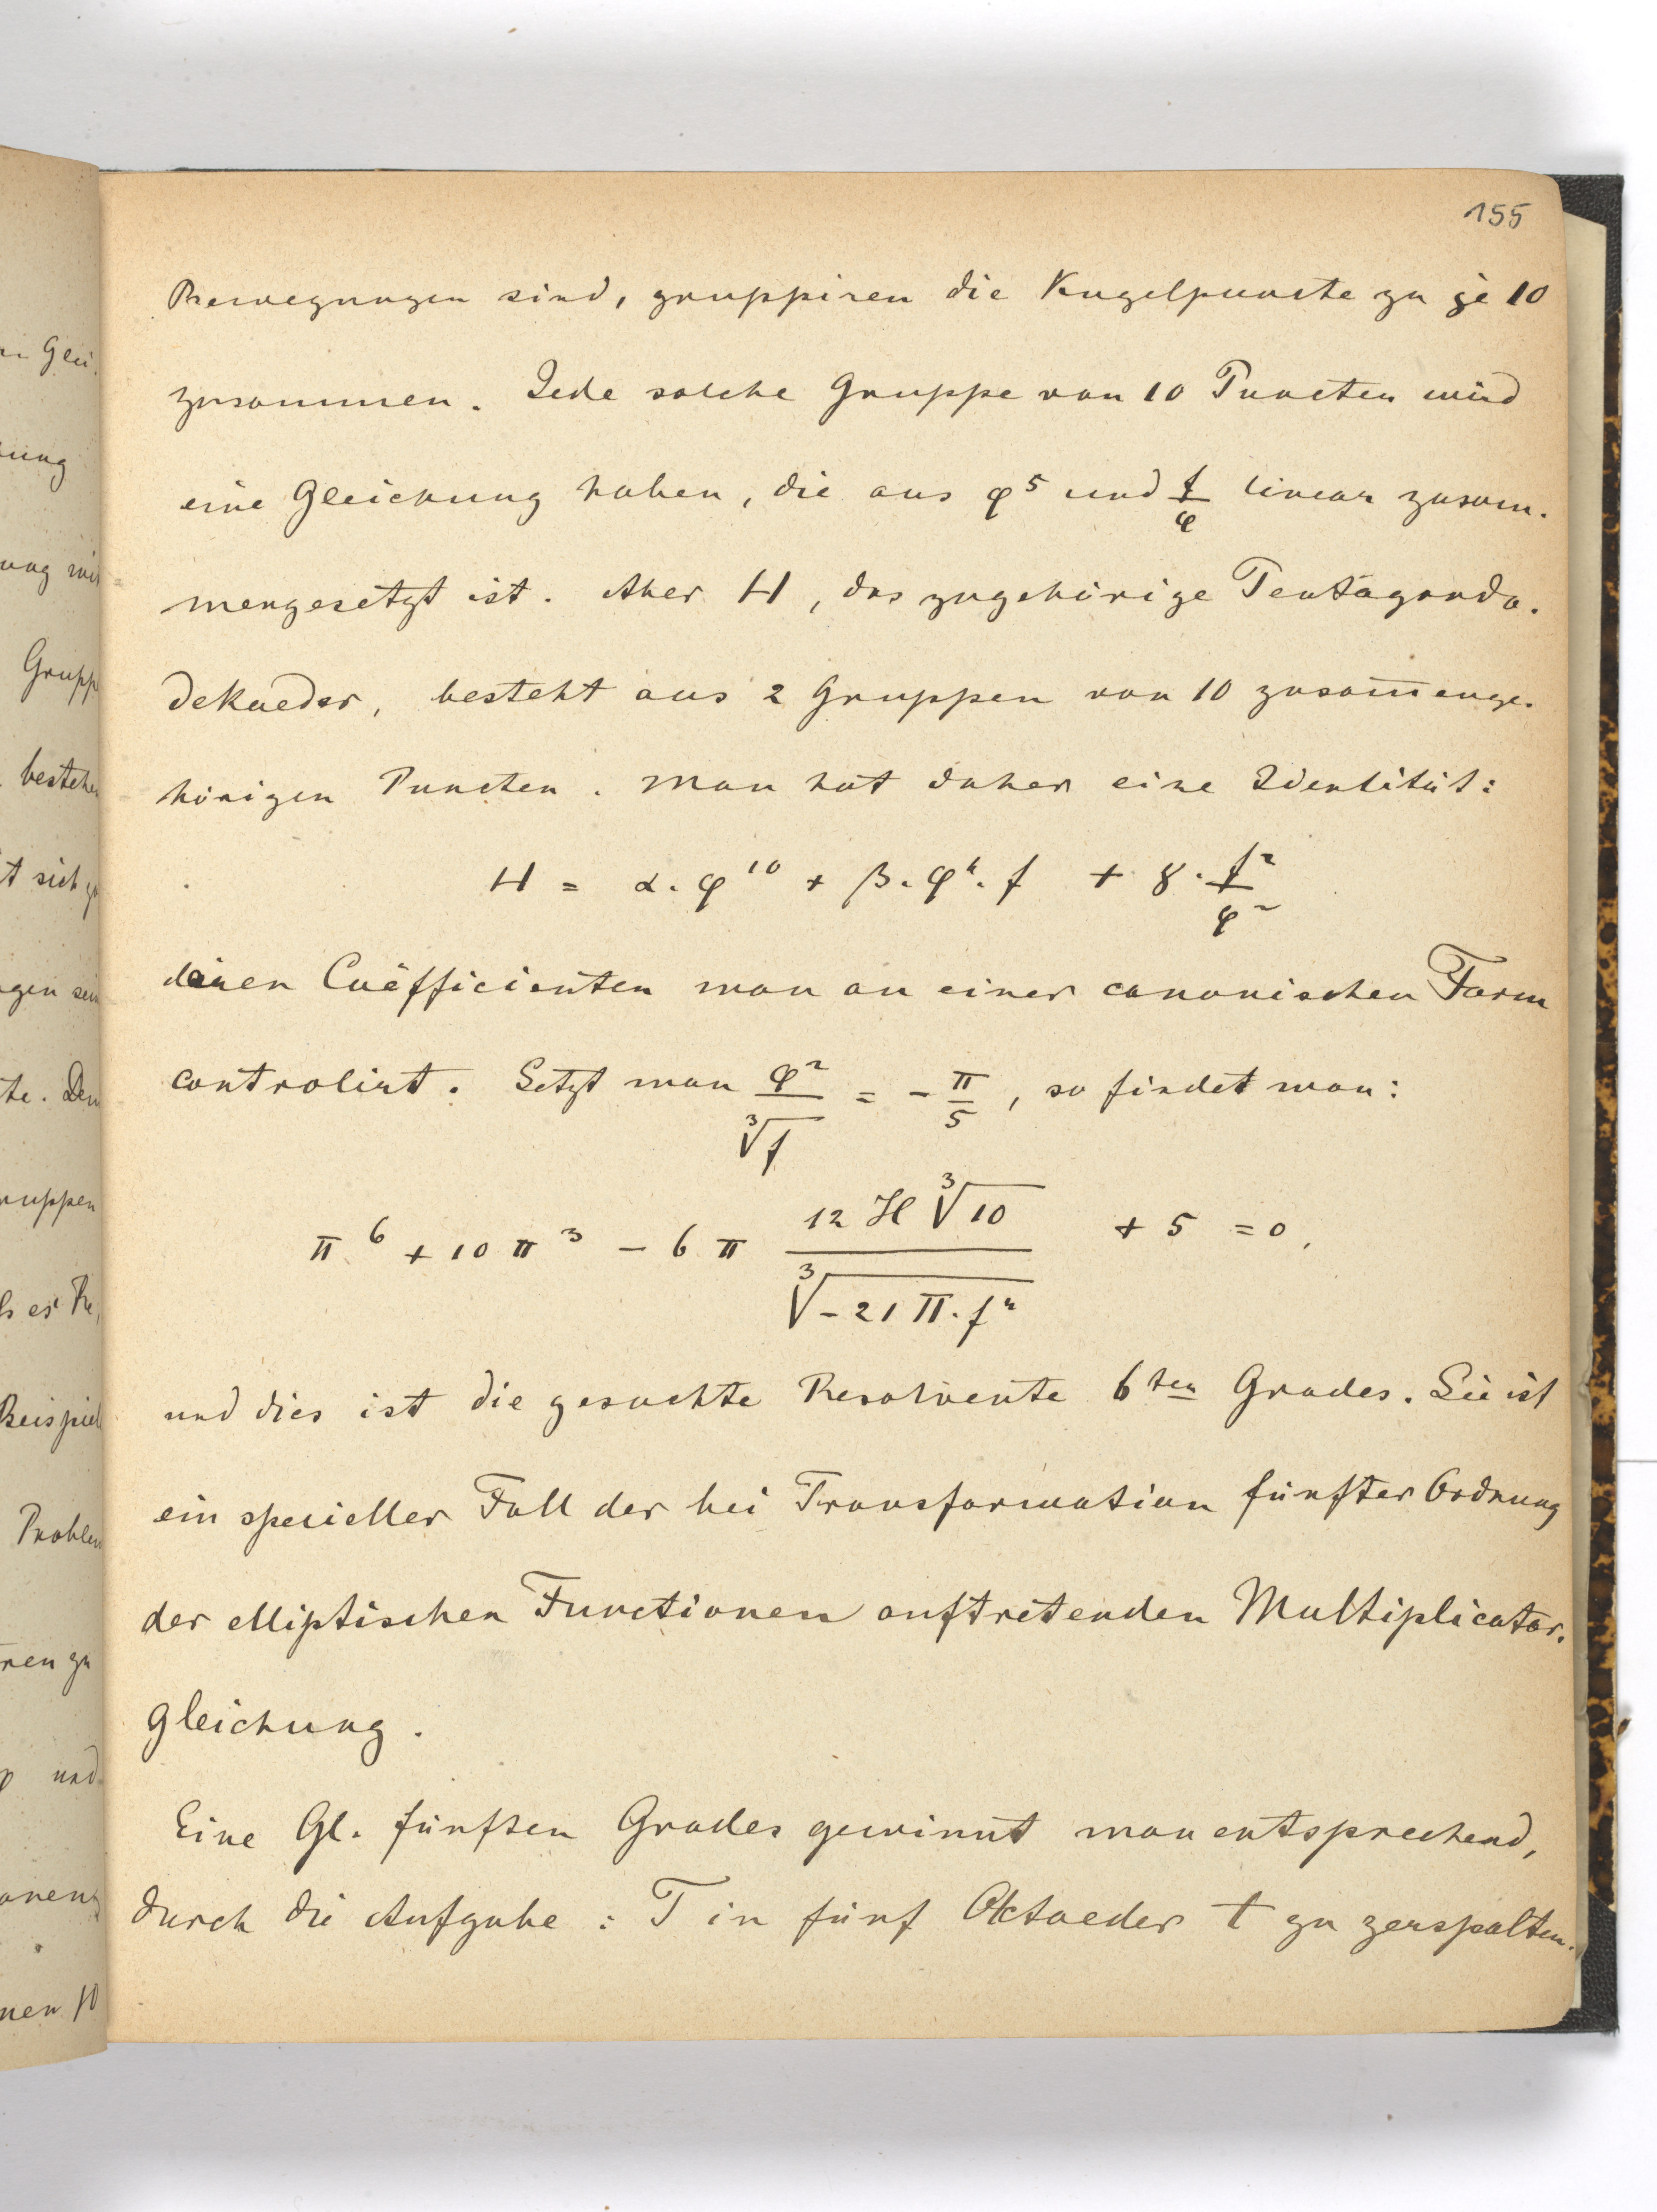 155
Bewegungen sind, gruppiren die Kugelpuncte zu je 10
zusammen. Jede solche Gruppe von 10 Puncten wird
eine Gleichung haben, die aus φ⁵ und f/φ linear zusam-
mengesetzt ist. Aber H, das zugehörige Pentagondo-
dekaeder, besteht aus 2 Gruppen von 10 zusam̅enge-
hörigen Puncten. Man hat daher eine Identität:
H = α. φ¹⁰ + β. φ⁴. f + γ. f²/φ²
deren Coëfficienten man an einer canonischen Form
controlirt. Setzt man φ²/∛f = - π/5, so findet man:
π⁶ + 10 π³ - 6 π (12 H ∛10)/(∛(-21 Π. f²)) + 5 = 0,
und dies ist die gesuchte Resolvente 6ten Grades. Sie ist
ein specieller Fall der bei Transformation fünfter Ordnung
der elliptischen Functionen auftretenden Multiplicator-
gleichung.
Eine Gl. fünften Grades gewinnt man entsprechend,
durch die Aufgabe: T in fünf Oktaeder t zu zerspalten.
n Glei-
ung
ung
Grupp
bestehen
t sich
gen sein
te. Den
ruppen
Beispiel
Problem
ren zu
φ und
nen 10